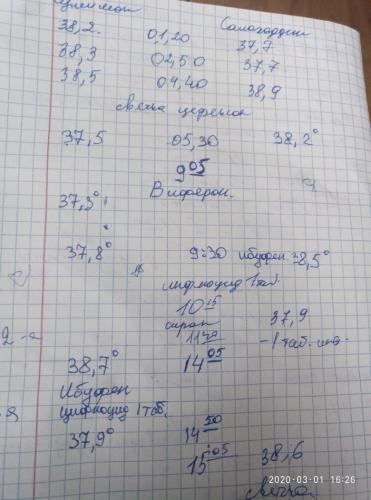 38,2. 01,20 37,7
38,3 02,50 37,7
38,5 04,40 38,9
свеча цефекон
37,5 05,30 38,2°
9 05
Виферон.
37,3°
37,8° 9:30 ибуфен 38,5°
1 таб.
10 15
37,9
38,7° 14 05 -1 таб.
Ибуфен
1 таб.
37,9° 14 50
15 05 38,6
2020-03-01 16:26